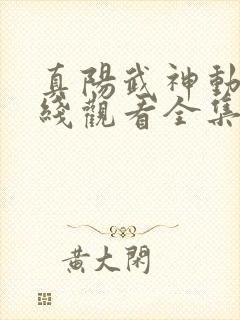 真陽武神動
綫觀看全集
黃大閑